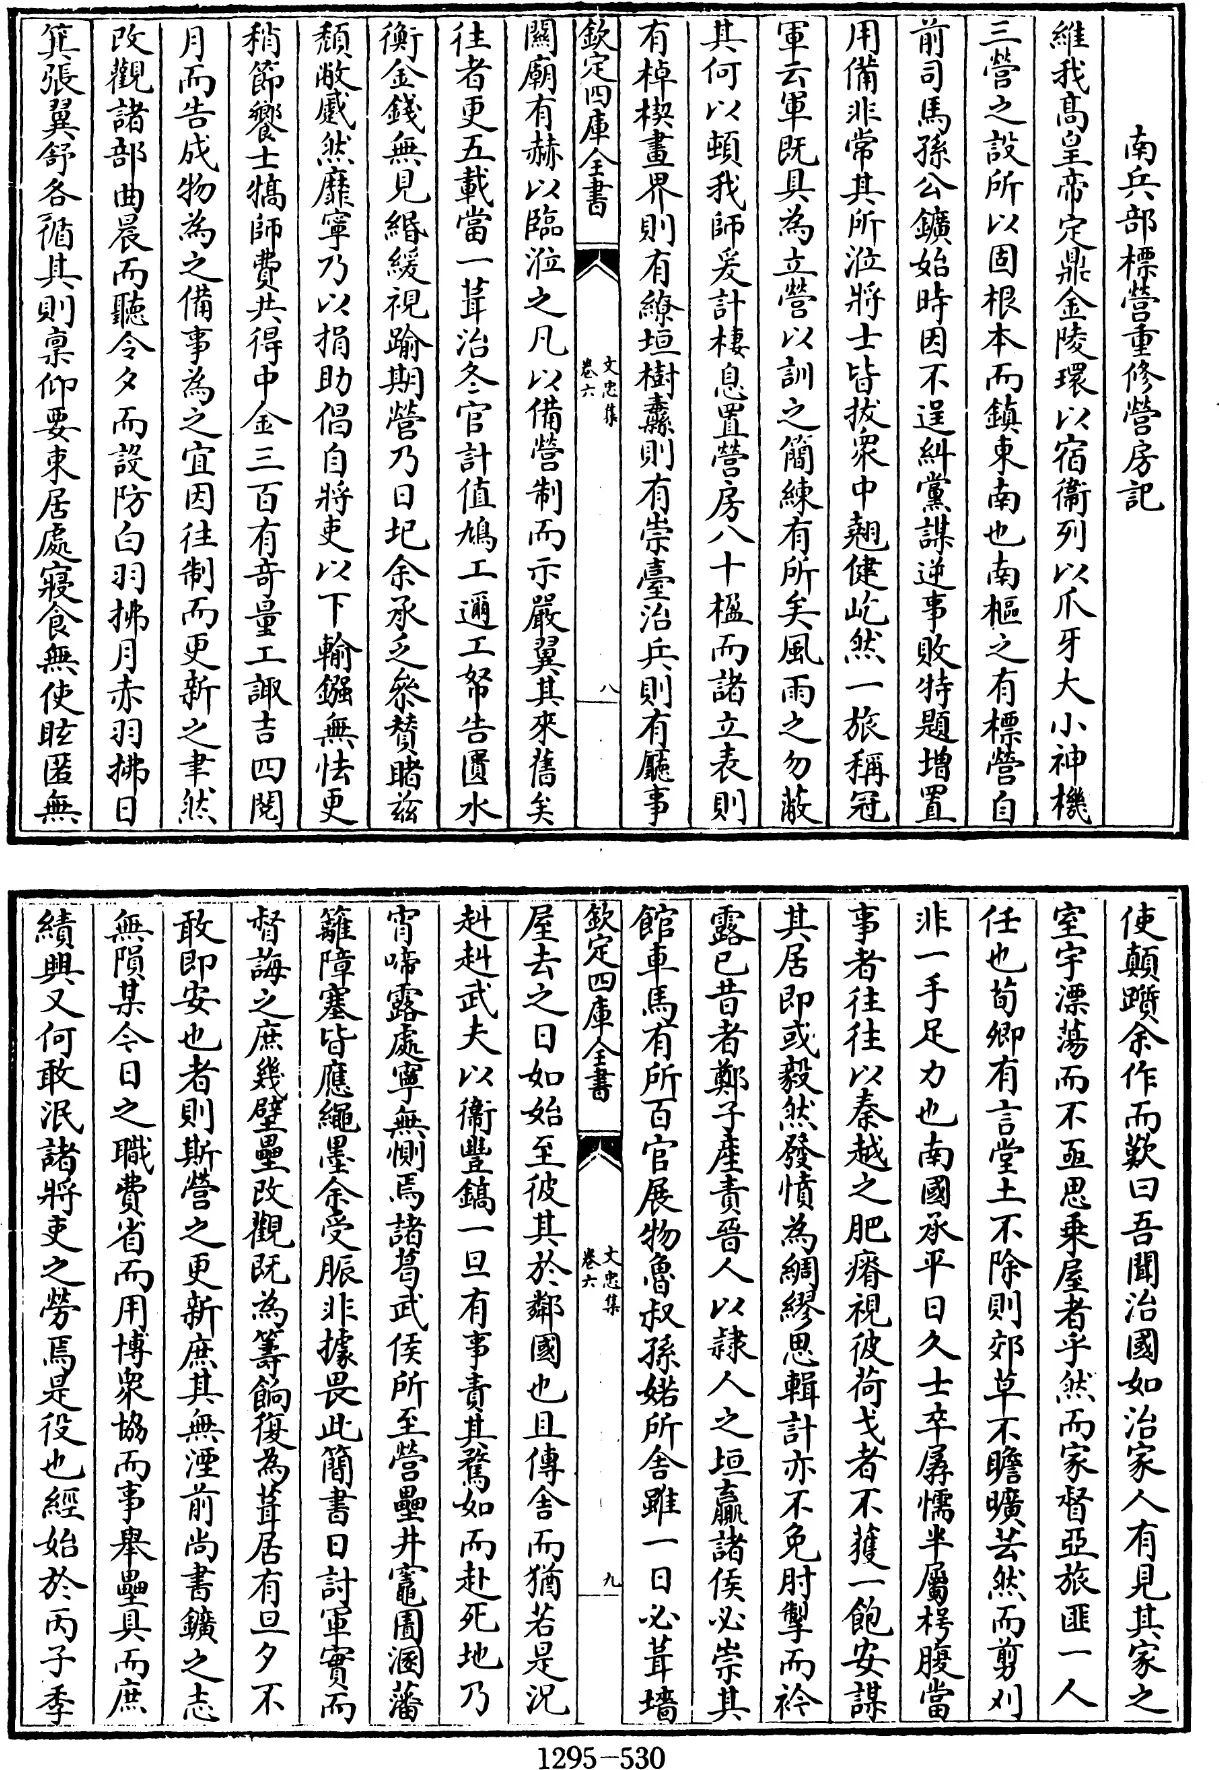 南兵部標營重修營房記
維我高皇帝定鼎金陵環以宿衞列以爪牙大小神機
三營之設所以固根本而鎮東南也南樞之有標營自
前司馬孫公鑛始時因不逞糾黨謀逆事敗特題增置
用備非常其所涖將士皆拔衆中翹健屹然一旅稱冠
軍云軍既具為立營以訓之簡練有所矣風雨之勿蔽
其何以頓我師爰計棲息置營房八十楹而諸立表則
有棹楔畫界則有繚垣樹纛則有崇臺治兵則有廳事
欽定四庫全書
文忠集
卷六
八
關廟有赫以臨涖之凡以備營制而示嚴翼其來舊矣
往者更五載當一葺治冬官計值鳩工邇工帑告匱水
衡金錢無見緡緩視踰期營乃日圮余承乏叅贊睹茲
頹敝慼然靡寧乃以捐助倡自將吏以下輸鏹無怯更
稍節饗士犒師費共得中金三百有奇量工諏吉四閱
月而告成物為之備事為之宜因往制而更新之聿然
改觀諸部曲晨而聽令夕而設防白羽拂月赤羽拂日
箕張翼舒各循其則稟仰要束居處寢食無使眩匿無
使顛躓余作而歎曰吾聞治國如治家人有見其家之
室宇漂蕩而不亟思乗屋者乎然而家督亞旅匪一人
任也荀卿有言堂土不除則郊草不瞻曠芸然而剪刈
非一手足力也南國承平日久士卒孱懦半屬枵腹當
事者往往以秦越之肥瘠視彼荷戈者不獲一飽安謀
其居即或毅然發憤為綢繆思輯計亦不免肘掣而衿
露已昔者鄭子產責晉人以隸人之垣贏諸侯必崇其
館車馬有所百官展物魯叔孫婼所舍雖一日必葺墻
欽定四庫全書
文忠集
卷六
九
屋去之日如始至彼其於鄰國也且傳舍而猶若是况
赳赳武夫以衞豐鎬一旦有事責其騖如而赴死地乃
宵啼露處寧無惻焉諸葛武侯所至營壘井竈圊溷藩
籬障塞皆應繩墨余受脤非據畏此簡書日討軍實而
督誨之庶幾壁壘改觀既為籌餉復為葺居有旦夕不
敢即安也者則斯營之更新庶其無湮前尚書鑛之志
無隕某今日之職費省而用博衆協而事舉壘具而庶
績興又何敢泯諸將吏之勞焉是役也經始於丙子季
1295-530